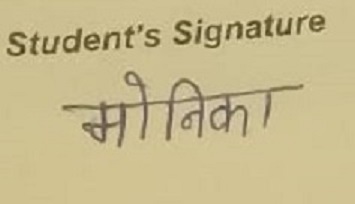 Student's Signature
मोनिका